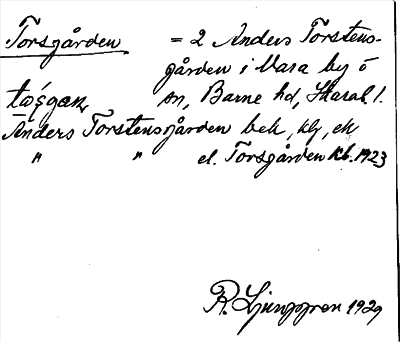 Torsgården = 2 Anders Torstens-
gården i Vara by o
sn, Barne hd, Skarab. l.
Anders Torstensgården bek, kg, ek
" " el. Torsgården kb. 1923
R. Ljunggren 1929